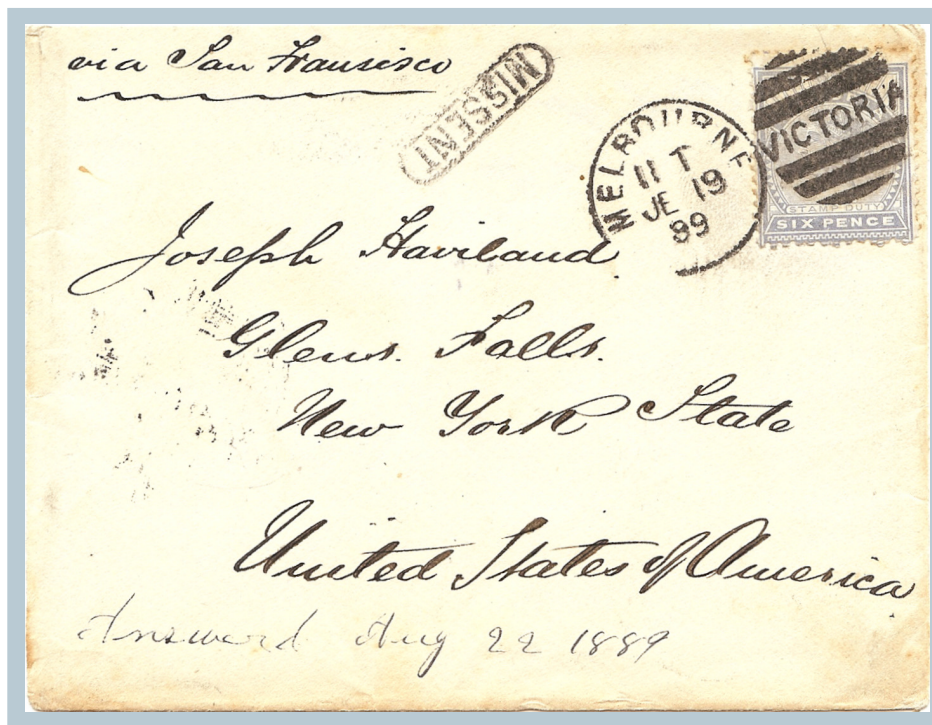 via San Fransisco
MISSENT
MELBOURNE
11 T
JE 19
89
VICTORIA
STAMP DUTY
SIX PENCE
Joseph Haviland
Glens. Falls.
New York State
United States of America
Answerd Aug 22 1889